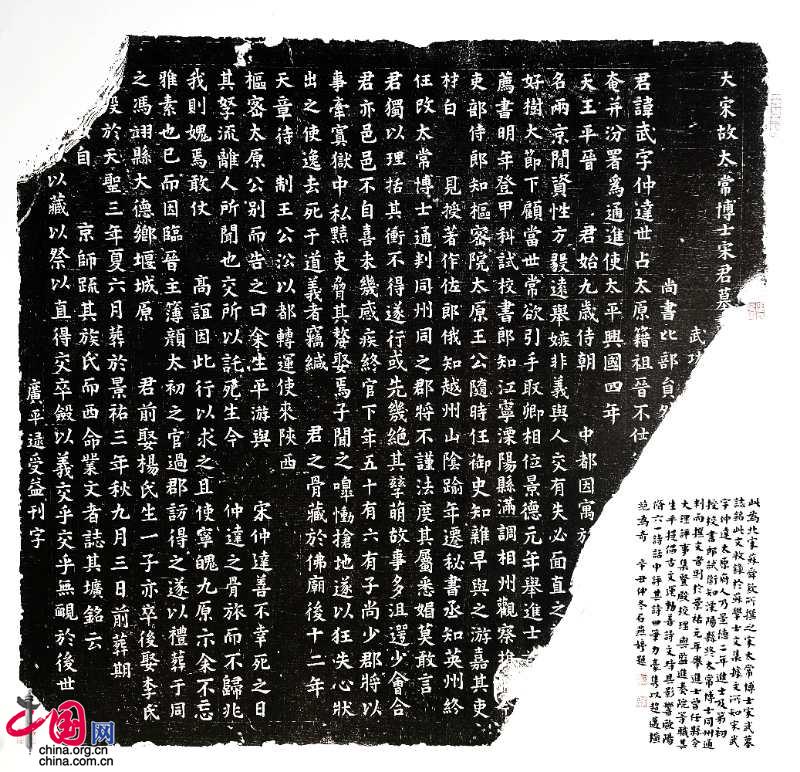 大宋故太常博士宋君墓
武功
尚書比部員外
君諱武字仲達世占太原籍祖晉不仕
奄并汾署為通進使太平興國四年
天王平晉 君始九歲侍朝 中都因寓於
名兩京間資性方毅遠舉嫉非義與人交有失必面直之
好樹大節下顧當世常欲引手取卿相位景德元年舉進士
薦書明年登甲科試校書郎知江寧溧陽縣滿調相州觀察推
吏部侍郎知樞密院太原王公隨時任御史知雜早與之游嘉其吏
材白 見授著作佐郎俄知越州山陰踰年遷秘書丞知英州終
任改太常博士通判同州同之郡將不謹法度其屬悉媢莫敢言
君獨以理括其衝不得遂行或先幾絕其孽萌故事多沮遝少會合
君亦邑邑不自喜未幾感疾終官下年五十有六有子尚少郡將以
事牽寘獄中私黠吏脅其嫠娶焉子聞之嘷慟搶地遂以狂失心狀
出之使逸去死于道義者竊緘 君之骨藏於佛廟後十二年
天章待 制王公沿以都轉運使來陝西
樞密太原公別而告之曰余生平游與 宋仲達善不幸死之日
其孥流離人所聞也交所以託死生今 仲達之骨旅而不歸兆
我則媿焉敢仗 高誼因此行以求之且使寧魄九原示余不忘
雅素也已而因臨晉主簿顏太初之官過郡訪得之遂以禮葬于同
之馮翊縣大德鄉堰城原 君前娶楊氏生一子亦卒後娶李氏
歿於天聖三年夏六月葬於景祐三年秋九月三日前葬期
自 京師疏其族氏而西命業文者誌其壙銘云
以藏以祭以直得交卒斂以義交乎交乎無覥於後世
廣平逯受益刊字
此為北宋蘇舜欽所撰之宋太常博士宋武墓
誌銘此文收錄於蘇學士文集據文所知宋武
字仲達太原府人乃景德二年進士及第初
授校書郎試銜知溧陽縣終太常博士同州通
判而撰文者則於景祐元年舉進士曾任縣令
大理評事集賢殿校理與監進奏院等職其
生平提倡古文運動善詩文時具影響歐陽
脩六一詩話中評其詩曰筆力豪雋以超邁橫
絕為奇 辛丑仲冬石燕婷題
中国网
china.org.cn
china.com.cn